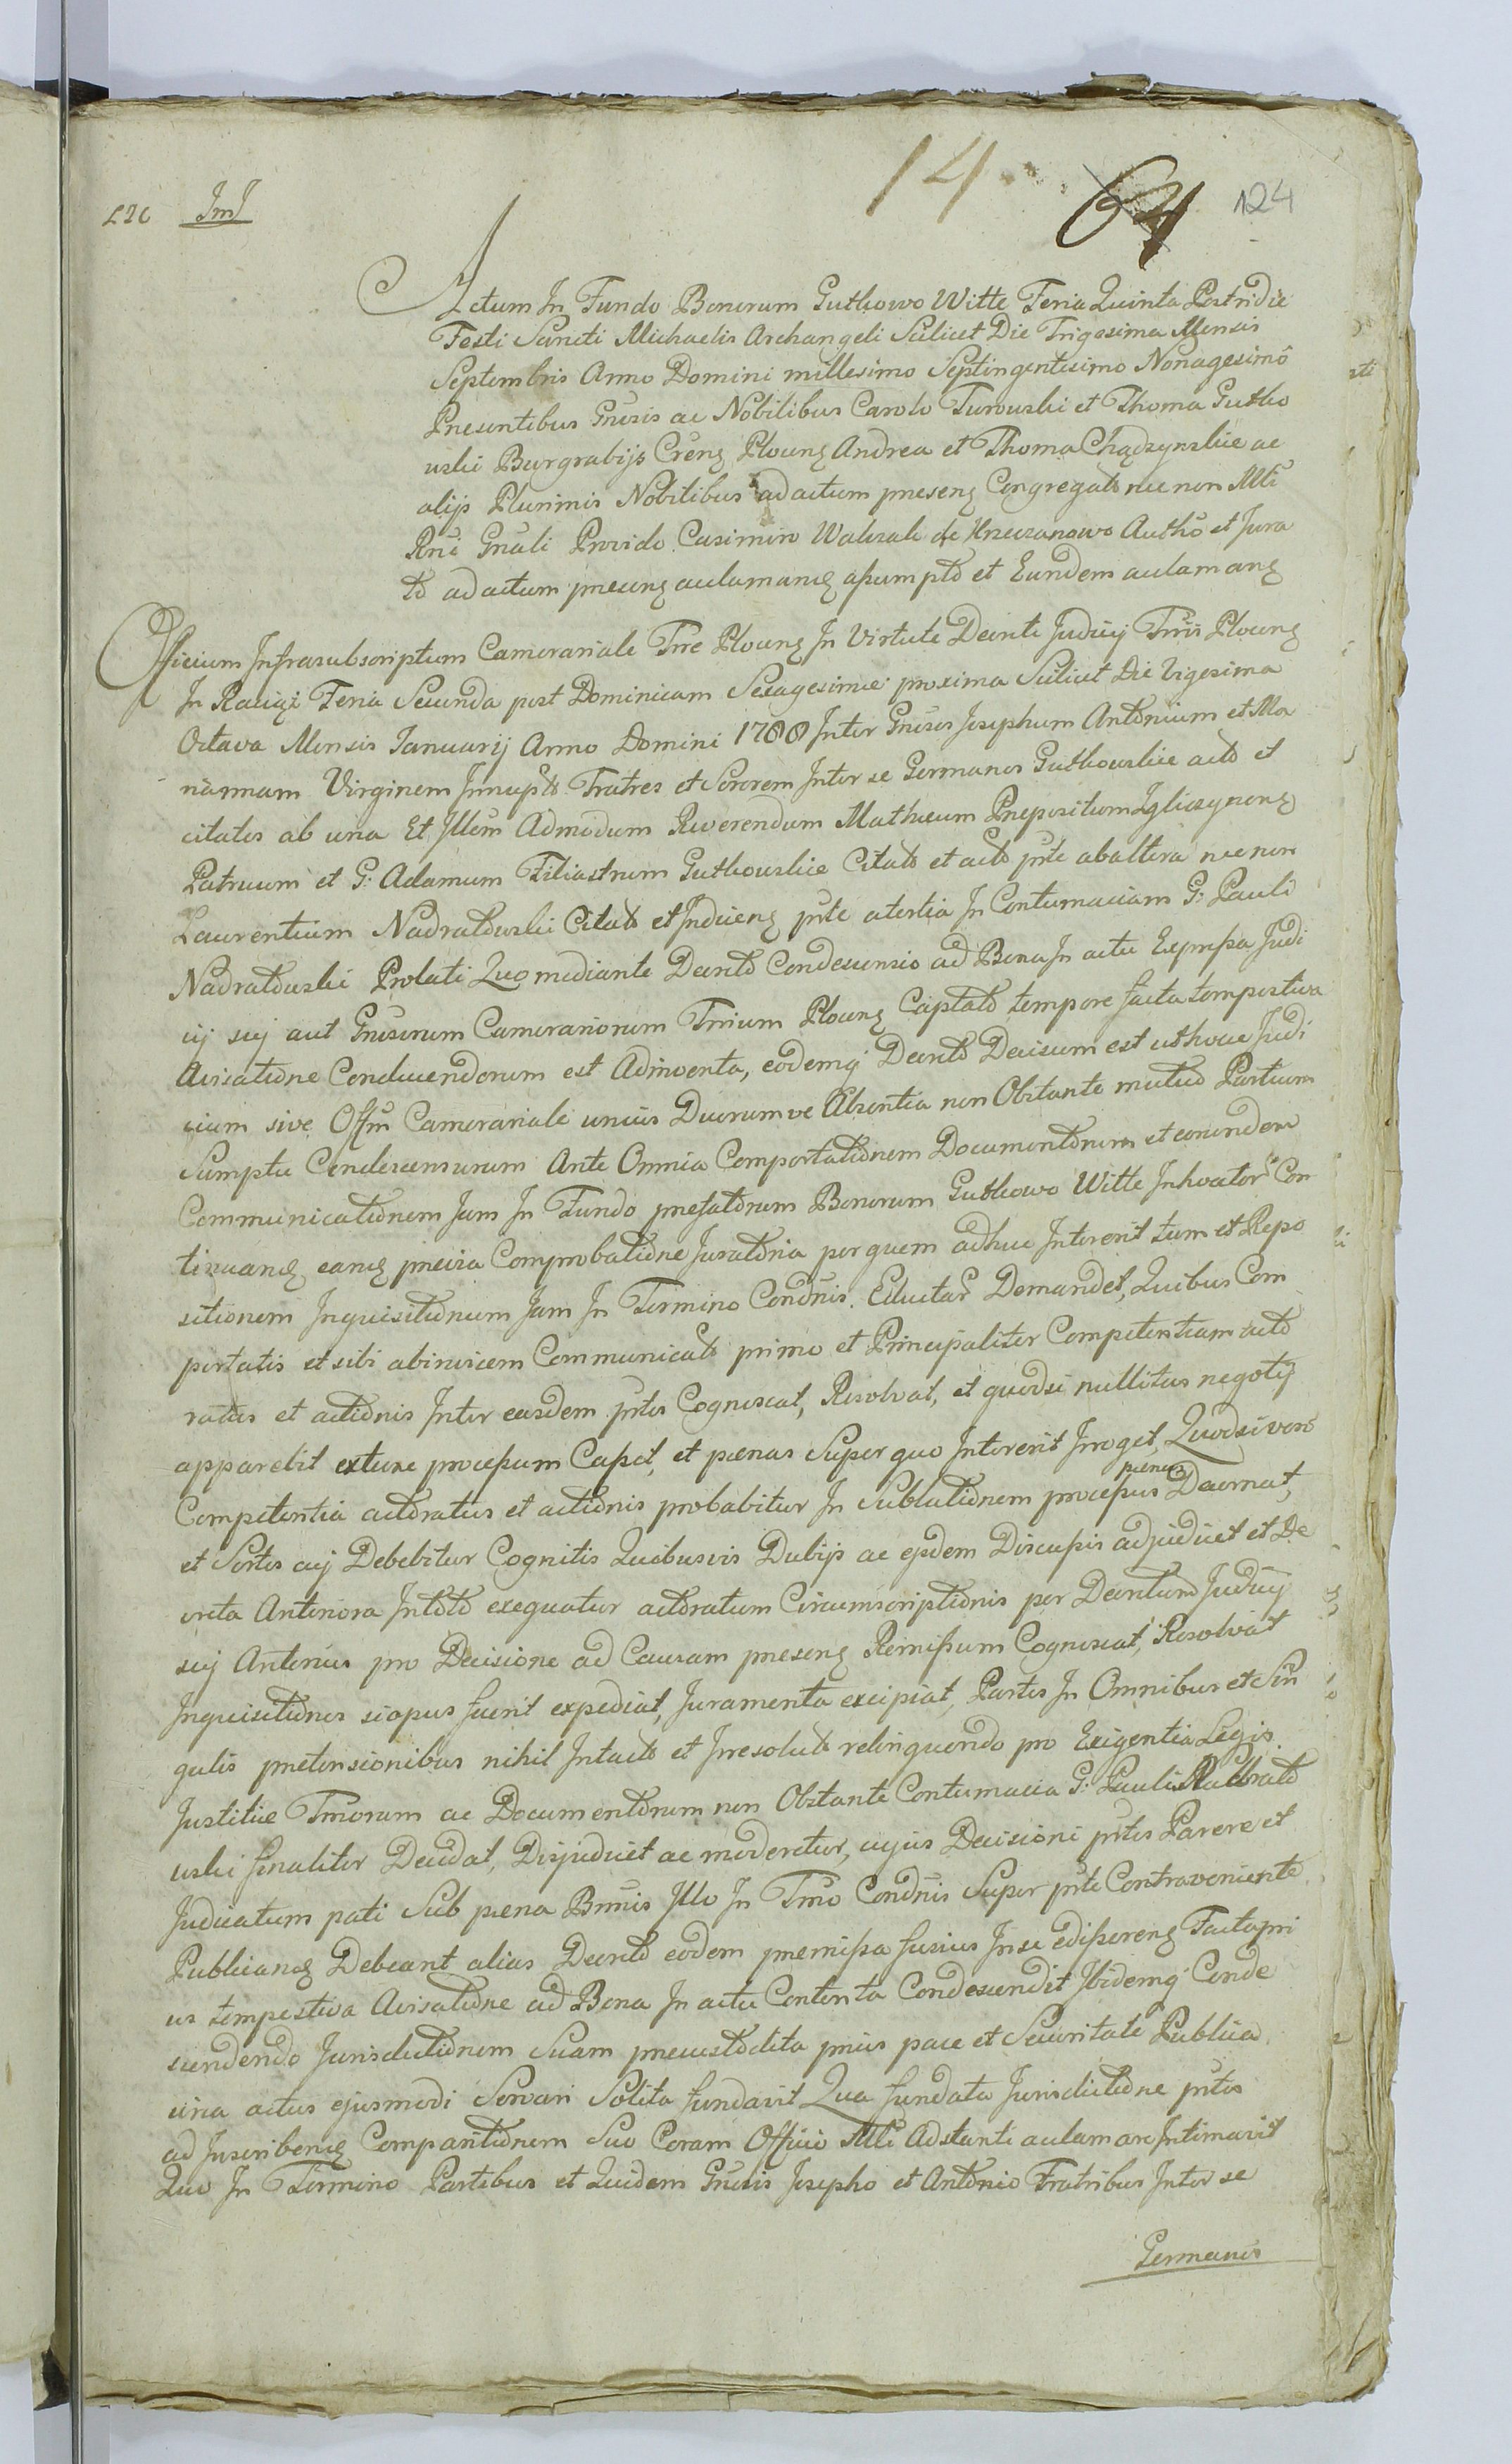 14 64 124
LIC ImJ
Actum In Fundo Bonorum Gutkowo Witte Feria Quinta Postridie
Festi Sancti Michaelis Archangeli Scilicet Die Trigesima Mensis
Septembris Anno Domini millesimo Septingentesimo Nonagesimo
Presentibus Gnesis ac Nobilibus Carolo Turowski et Thoma Gutko
wski Burgrabijs Crens Plocens Andrea et Thoma Chądzynskie ac
alijs Plurimis Nobilibus ad actum presens Congregatis nec non Mli
Rni Gnali Provido Casimiro Walczak de Auth̃o et Jura
to ad actum precens aclamans assumpto et Eundem aclamans
Officium Infrasubscriptum Camerariale Trre Plocens In Virtute Decreti Judicij Trris Plocens
In Raciąż Feria Secunda post Dominicam Sexagesimae proxima Scilicet Die Vigesima
Octava Mensis Januarij Anno Domini 1788 Inter Gnesos Josephum Antonium et Ma
riannam Virginem Innuptã Fratres et Sororem Inter se Germanos Gutkowskie acto et
citatos ab una Et Illem Admodum Reverendum Mathaeum Prepositum Igliczynens
Patruum et G: Adamum Filiastrum Gutkowskie Citatõ et actõ prte ab altera nec non
Laurentium Nadratowski Citatõ et Inducens prte a tertia In Contumaciam G: Pauli
Nadratowski Prolati Quo mediante Decreto Condescensio ad Bona In actu Expressa Judi
cij sui aut Gnesorum Camerariorum Trrium Plocens Captato tempore facta tempestiva
Avisatione Conducendorum est Adinventa, eodemq̃ Decreto Decisum est ut hocce Judi
cium sive Offm Camerariale unius Duorumve Absentia non Obstante mutuo Partium
Sumptu Condescensurum Ante Omnia Comportationem Documentorum et eorundem
Communicationem Jam In Fundo prefatorum Bonorum Gutkowo Witte Con
tinuans, eans previa Comprobatione Juratoria per quem adhuc Intererit tum et Repo
sitionem Inquisitionum Jam In Termino Condnis. Demandet, Quibus Com
portatis et sibi ab invicem Communicatis primo et Principaliter Competentiam acto
ratus et actionis Inter easdem prtes Cognoscat, Resolvat, et quodsi nullitas negotij
apparebit extunc processum Casset, et paenas Super quo Intererit Irroget, Quodsi vero
Competentia actoratus et actionis probabitur In Sublationem processus paenas Decernat,
et Sortes cuj Debebitur Cognitis Quibusvis Dubijs ac ejsdem Discussis adjudicet et De
creta Anteriora Intoto exequatur actoratum Circumscriptionis per Decretum Judicij
sui Anterius pro Decisione ad Causam presens Remissum Cognoscat, Resolvat
Inquisitiones si opus fuerit expediat, Juramenta excipiat, Partes In Omnibus et Sin
gulis pretensionibus nihil Intactõ et Irresolutõ relinquendo pro Exigentia Legis.
Justitiae Tmorum ac Documentorum non Obstante Contumacia G: Pauli Nadrato
wski finaliter Decidat, Disjudicet ac moderetur, cujus Decisioni prtes Parere et
Judicatum pati Sub paena Bnnis Illo In Tmo Condnis Super prte Contraveniente
Publicans Debeant alias Decreto eodem premissa fusius In se edisserens Facta pri
us tempestiva Avisatione ad Bona In actu Contenta Condescendit Ibidemq̃ Conde
scendendo Jurisdictionem Suam precustodita prius pace et Securitate Publica
circa actus ejusmodi Servari Solita fundavit Qua fundata Jurisdictione prtes
ad Inscribens Comparitionem Suo Coram Officio Mli Adstanti aclamare Intimavit
Quo In Termino Partibus et Quidem Gnesis Josepho et Antonio Fratribus Inter se
Germanis